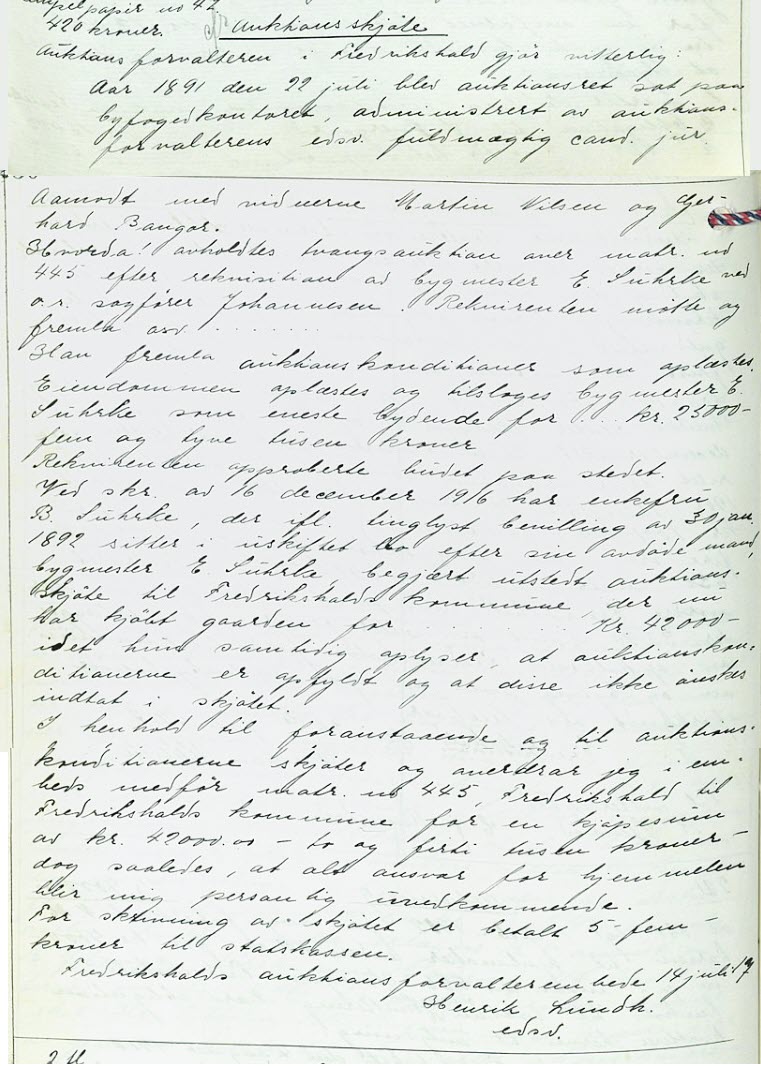 420 kroner. Auktionsskjøte
Auktionsforvalteren i Fredrikshald gjør vitterlig:
Aar 1891 den 22 juli blev auktionsret sat paa
byfogedkontoret, administrert av auktions-
forvalterens edsv. fuldmægtig cand. jur.
Aamodt med vidnerne Martin Nilsen og Ger-
hard Bangor.
Hvorda! avholdtes tvangsauktion over matr. no
445 efter rekvisition av bygmester E. Suhrke ved
o.r. sagfører Johannesen. Rekvirenten møtte og
fremla osv. . . . . . . .
Han fremla auktionskonditioner som oplæstes.
Eiendommen oplæstes og tilsloges bygmester E.
Suhrke som eneste bydende for . . . kr. 25000-
fem og tyve tusen kroner
Rekvirenten approberte budet paa stedet.
Ved skr. av 16 december 1916 har enkefru
B. Suhrke, der ifl. tinglyst bevilling av 30 jan.
1892 sitter i uskiftet bo efter sin avdøde mand,
bygmester E. Suhrke, begjært utstedt auktions-
skjøte til Fredrikshalds kommune, der nu
har kjøbt gaarden for . . . . . . . Kr. 42000-
idet hun samtidig oplyser, at auktionskon-
ditionerne er opfyldt og at disse ikke ønskes
indtat i skjøtet.
I henhold til foranstaaende og til auktions-
konditionerne skjøter og overdrar jeg i em-
beds medfør matr. no 445, Fredrikshald til
Fredrikshalds kommune for en kjøpesum
av kr. 42000.00 - to og førti tusen kroner -
dog saaledes, at alt ansvar for hjemmelen
blir mig personlig uvedkommende.
For skrivning av skjøtet er betalt 5 - fem -
kroner til statskassen.
Fredrikshalds auktionsforvalterembede 14 juli 17
Henrik Lundh.
edsv.